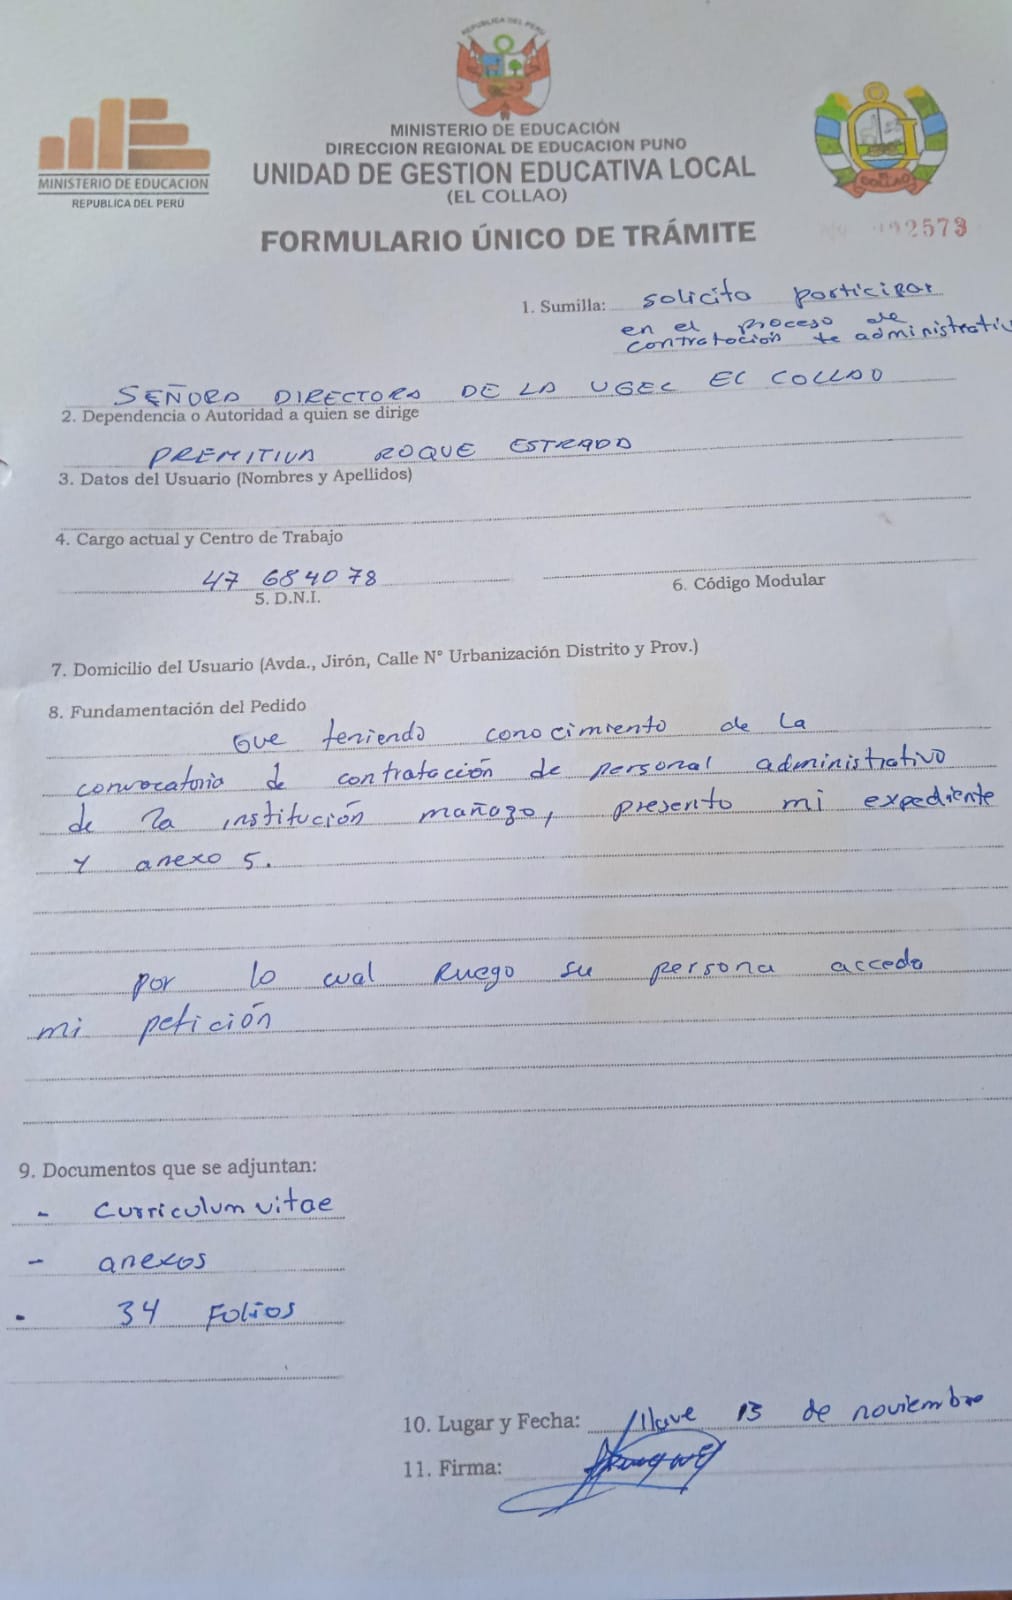 REPUBLICA DEL PERU
MINISTERIO DE EDUCACION
REPUBLICA DEL PERÚ
MINISTERIO DE EDUCACIÓN
DIRECCION REGIONAL DE EDUCACION PUNO
UNIDAD DE GESTION EDUCATIVA LOCAL
(EL COLLAO)
COLLAO
FORMULARIO ÚNICO DE TRÁMITE
2573
1. Sumilla: solicito participar
en el proceso de
contratación te administrativ
SEÑORA DIRECTORA DE LA UGEL EL COLLAO
2. Dependencia o Autoridad a quien se dirige
PREMITIVA ROQUE ESTRADA
3. Datos del Usuario (Nombres y Apellidos)
4. Cargo actual y Centro de Trabajo
47 684078
5. D.N.I.
6. Código Modular
7. Domicilio del Usuario (Avda., Jirón, Calle N° Urbanización Distrito y Prov.)
8. Fundamentación del Pedido
Que teniendo conocimiento de la
convocatoria de contratacción de personal administrativo
de la institución mañazo, presento mi expediente
y anexo 5.
por lo cual Ruego su persona acceda
mi petición
9. Documentos que se adjuntan:
- Curriculum vitae
- anexos
- 34 Folios
10. Lugar y Fecha: Ilave 13 de noviembre
11. Firma: